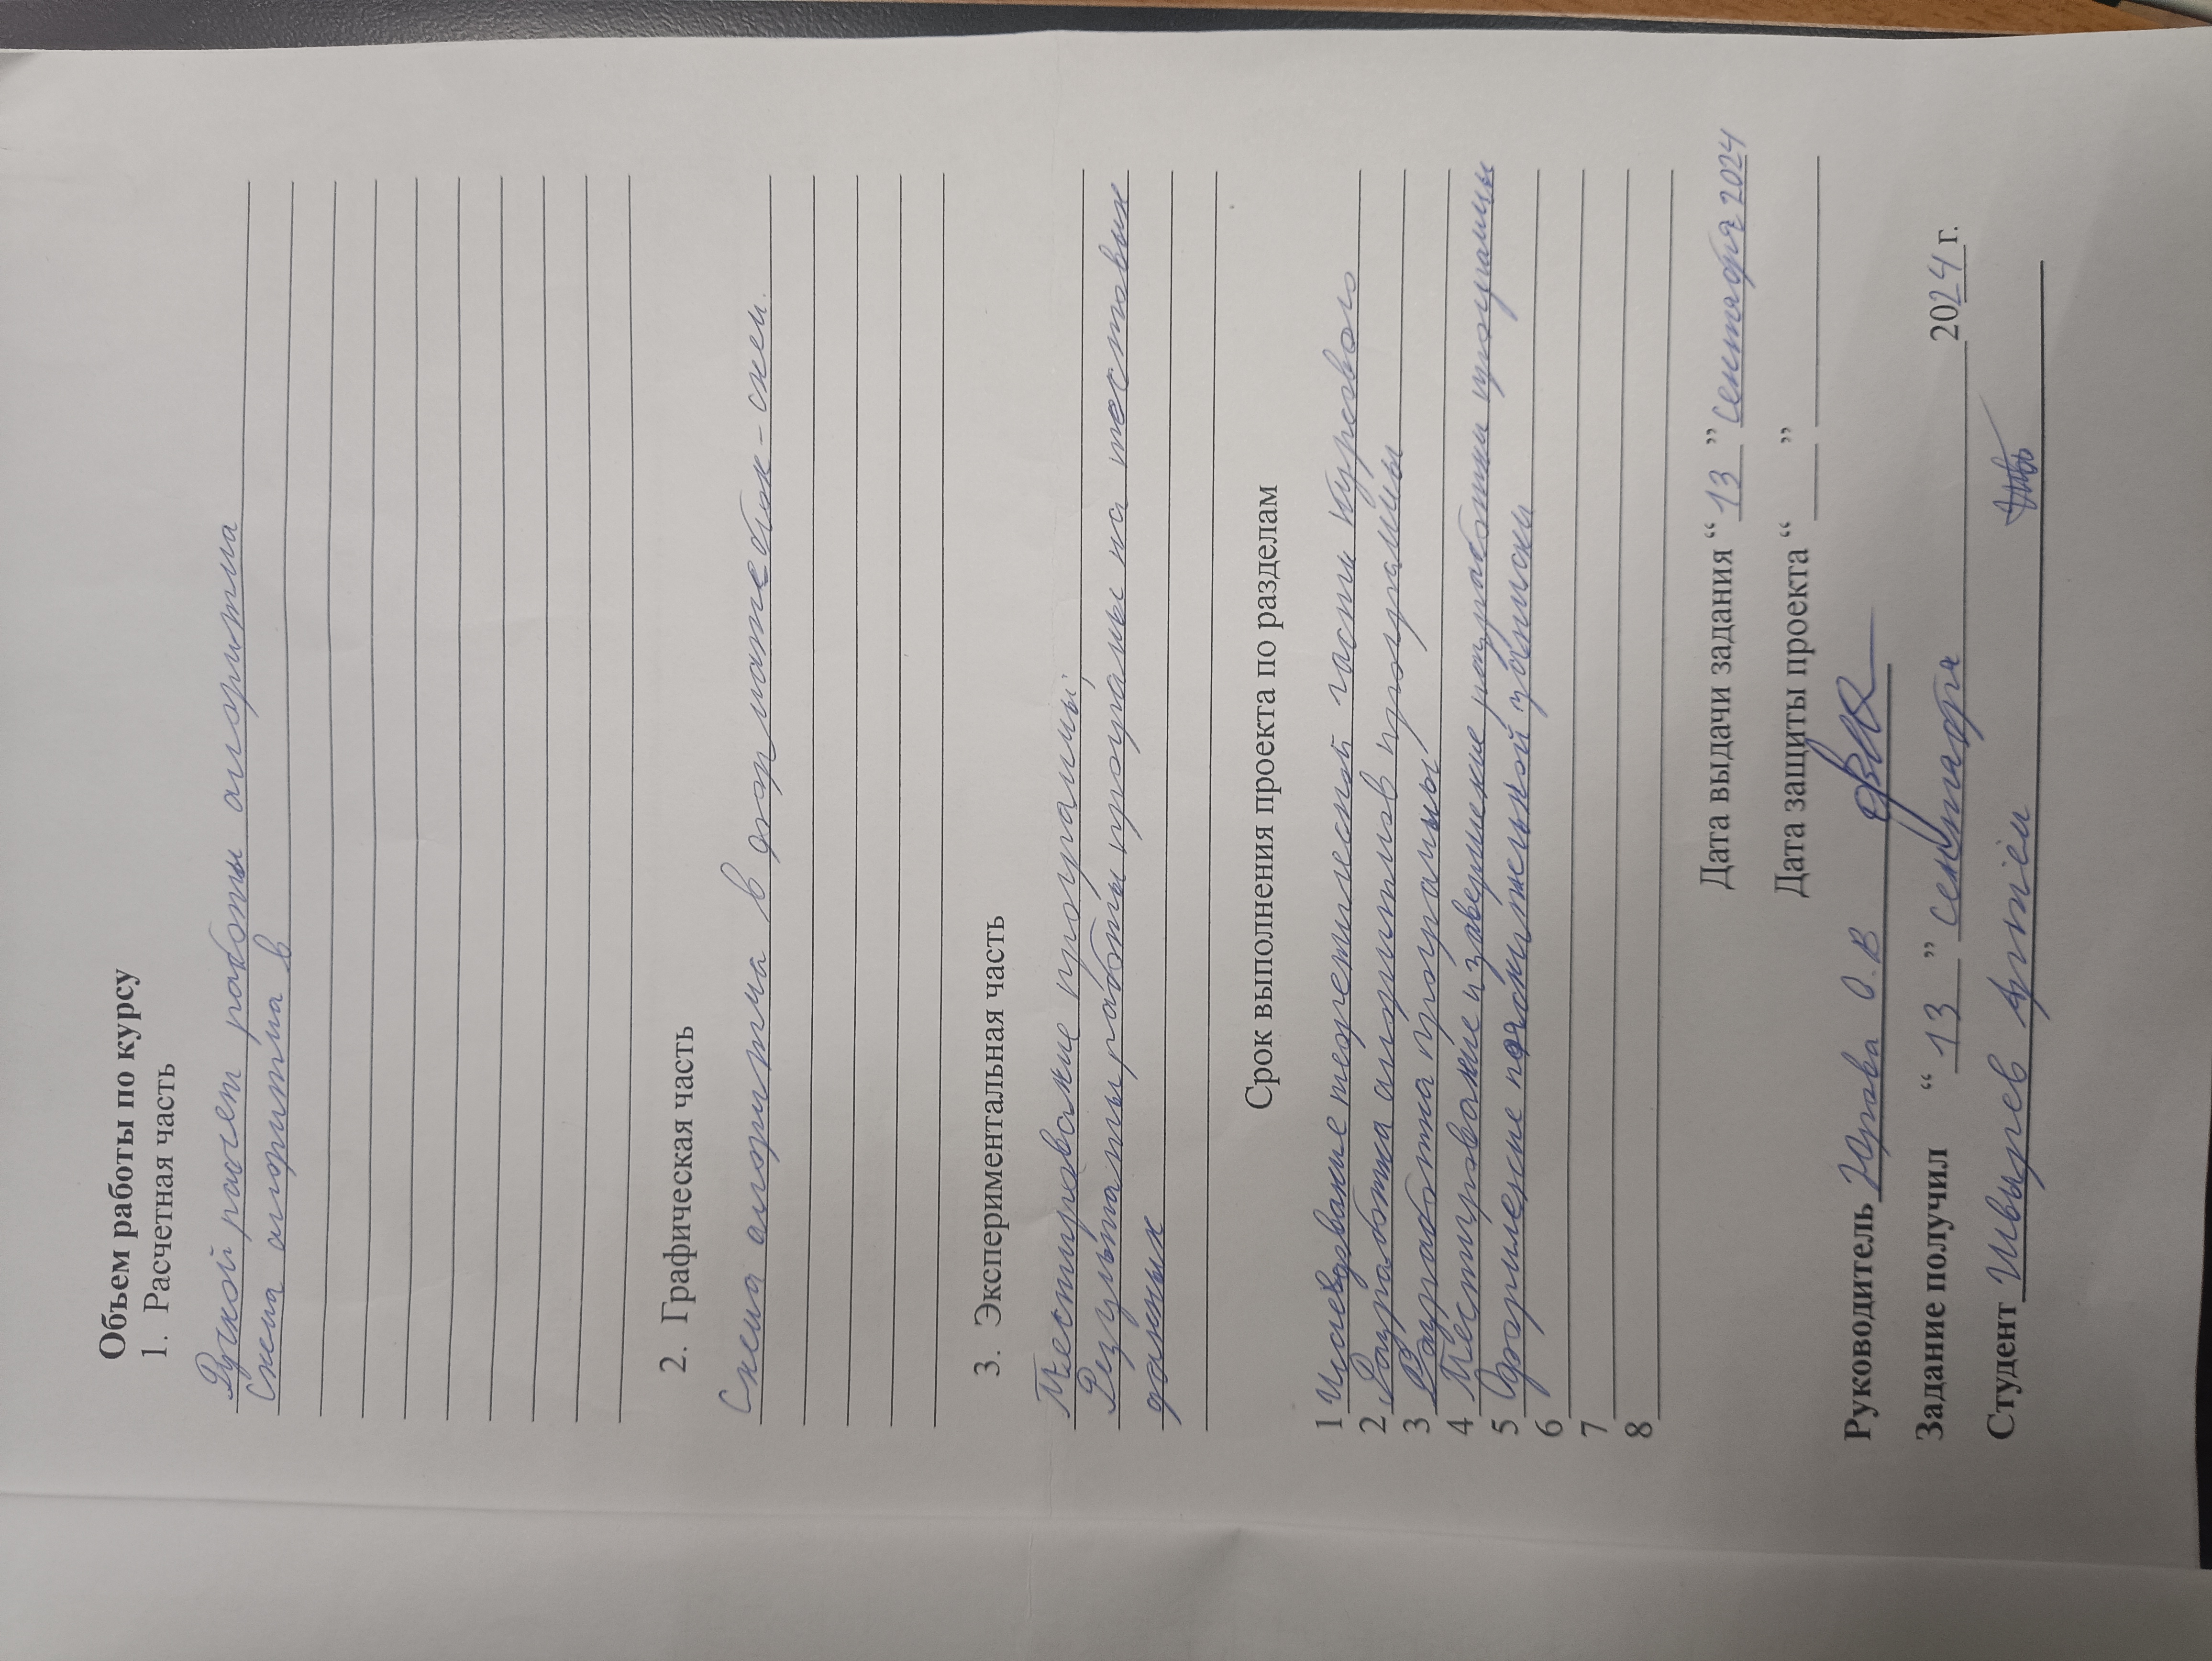 Объем работы по курсу
1. Расчетная часть
Ручной расчет работы алгоритма
Схема алгоритма в
2. Графическая часть
Схема алгоритма в формате блок-схем.
3. Экспериментальная часть
Тестирование программы;
Результаты работы программы на тестовых
данных
Срок выполнения проекта по разделам
1 Исследование теоретической части курсового
2 Разработка алгоритмов программы
3 Разработка программы
4 Тестирование и завершение разработки программы
5 Оформление пояснительной записки
6
7
8
Дата выдачи задания “ 13 ” сентября 2024
Дата защиты проекта “ ”
Руководитель Юрова О.В
Задание получил “ 13 ” сентября 2024 г.
Студент Швырев Артём